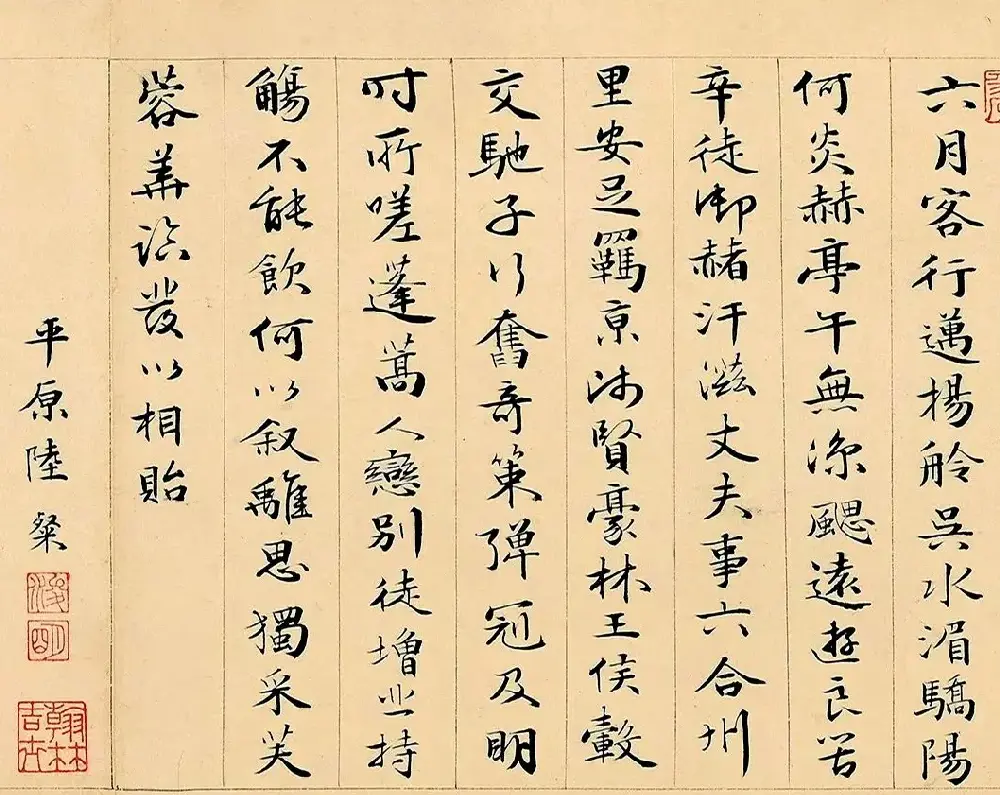 六月客行邁揚舲吳水湄驕陽
何炎赫亭午無涼颸遠遊良苦
辛徒御赭汗滋丈夫事六合州
里安足羈京師賢豪林王侯轂
交馳子行奮奇策彈冠及明
時所嗟蓬蒿人戀別徒增悲持
觴不能飲何以叙離思獨采芙
蓉華臨發以相貽
平原陸粲
浚明
翰林吉士